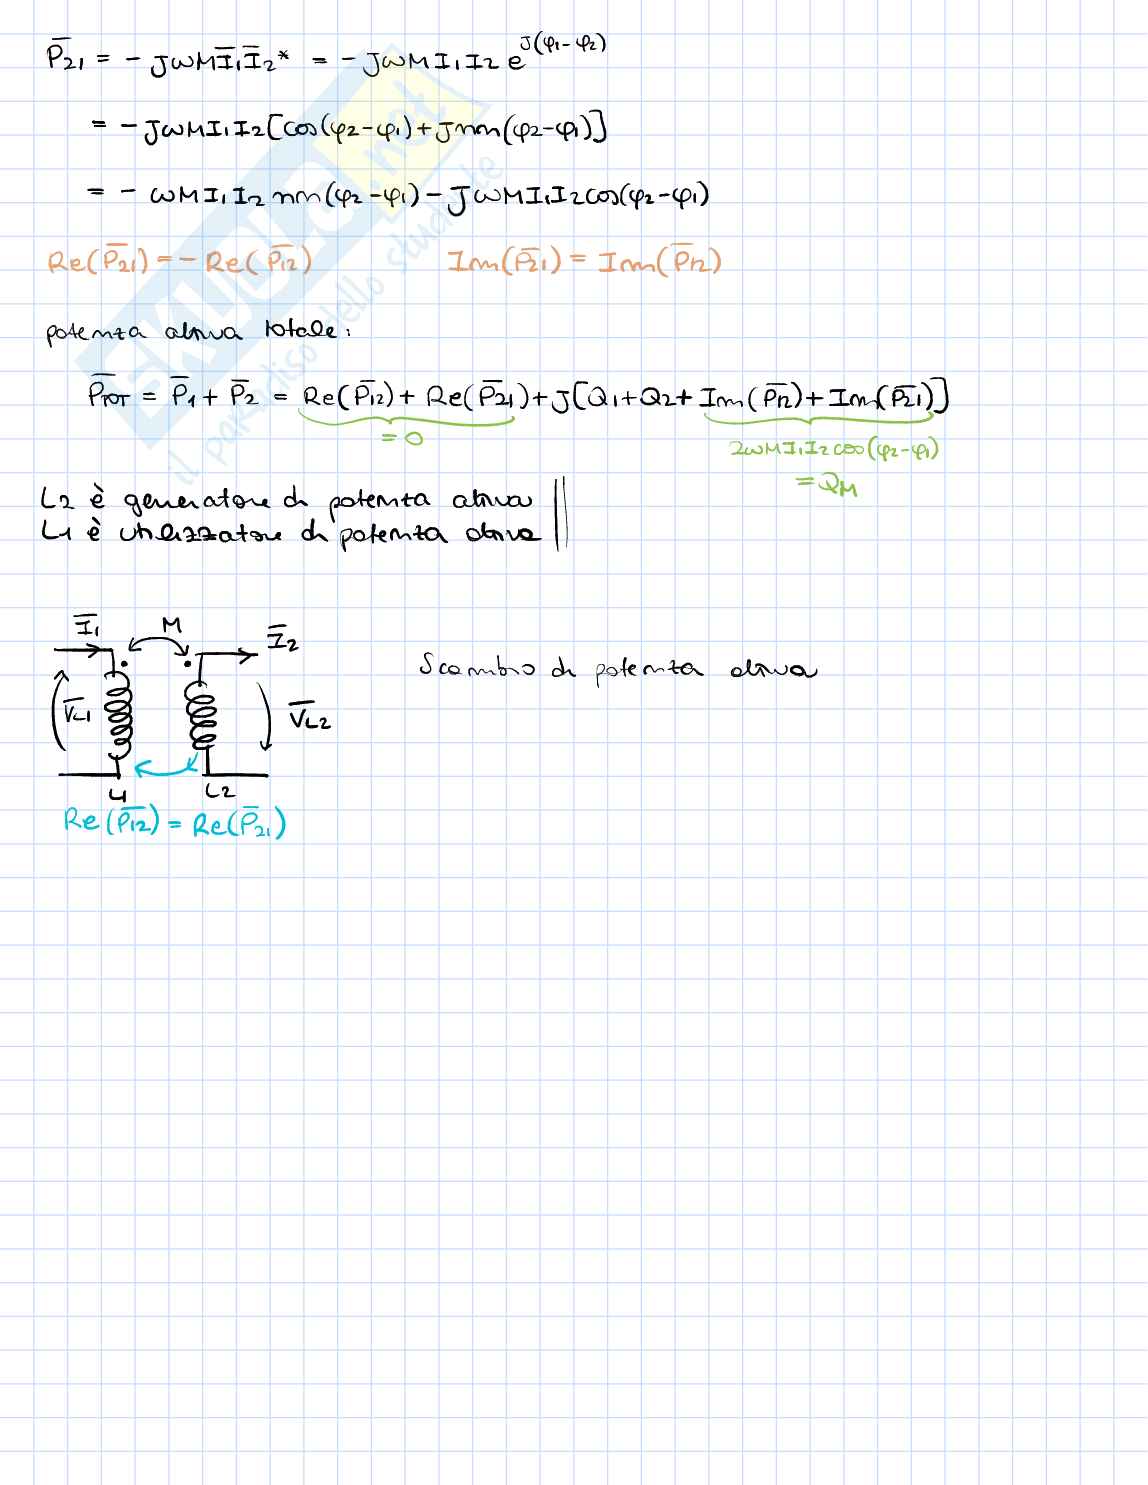 P̅₂₁ = - JωM I̅₁ I̅₂* = - JωM I₁ I₂ e^J(φ₁-φ₂)
= - JωM I₁ I₂ [cos(φ₂-φ₁) + J sin(φ₂-φ₁)]
= - ωM I₁ I₂ sin(φ₂-φ₁) - JωM I₁ I₂ cos(φ₂-φ₁)
Re(P̅₂₁) = - Re(P̅₁₂) Im(P̅₂₁) = Im(P̅₁₂)
potenza attiva totale:
P̅TOT = P̅₁ + P̅₂ = Re(P̅₁₂) + Re(P̅₂₁) + J[Q₁ + Q₂ + Im(P̅₁₂) + Im(P̅₂₁)]
= 0 2ωM I₁ I₂ cos(φ₂-φ₁)
= QM
L2 è generatore di potenza attiva
L1 è utilizzatore di potenza attiva
I̅₁ M I̅₂
Scambio di potenza attiva
V̅L1 V̅L2
L1 L2
Re(P̅₁₂) = Re(P̅₂₁)
SKUOLA.net
il paradiso dello studente